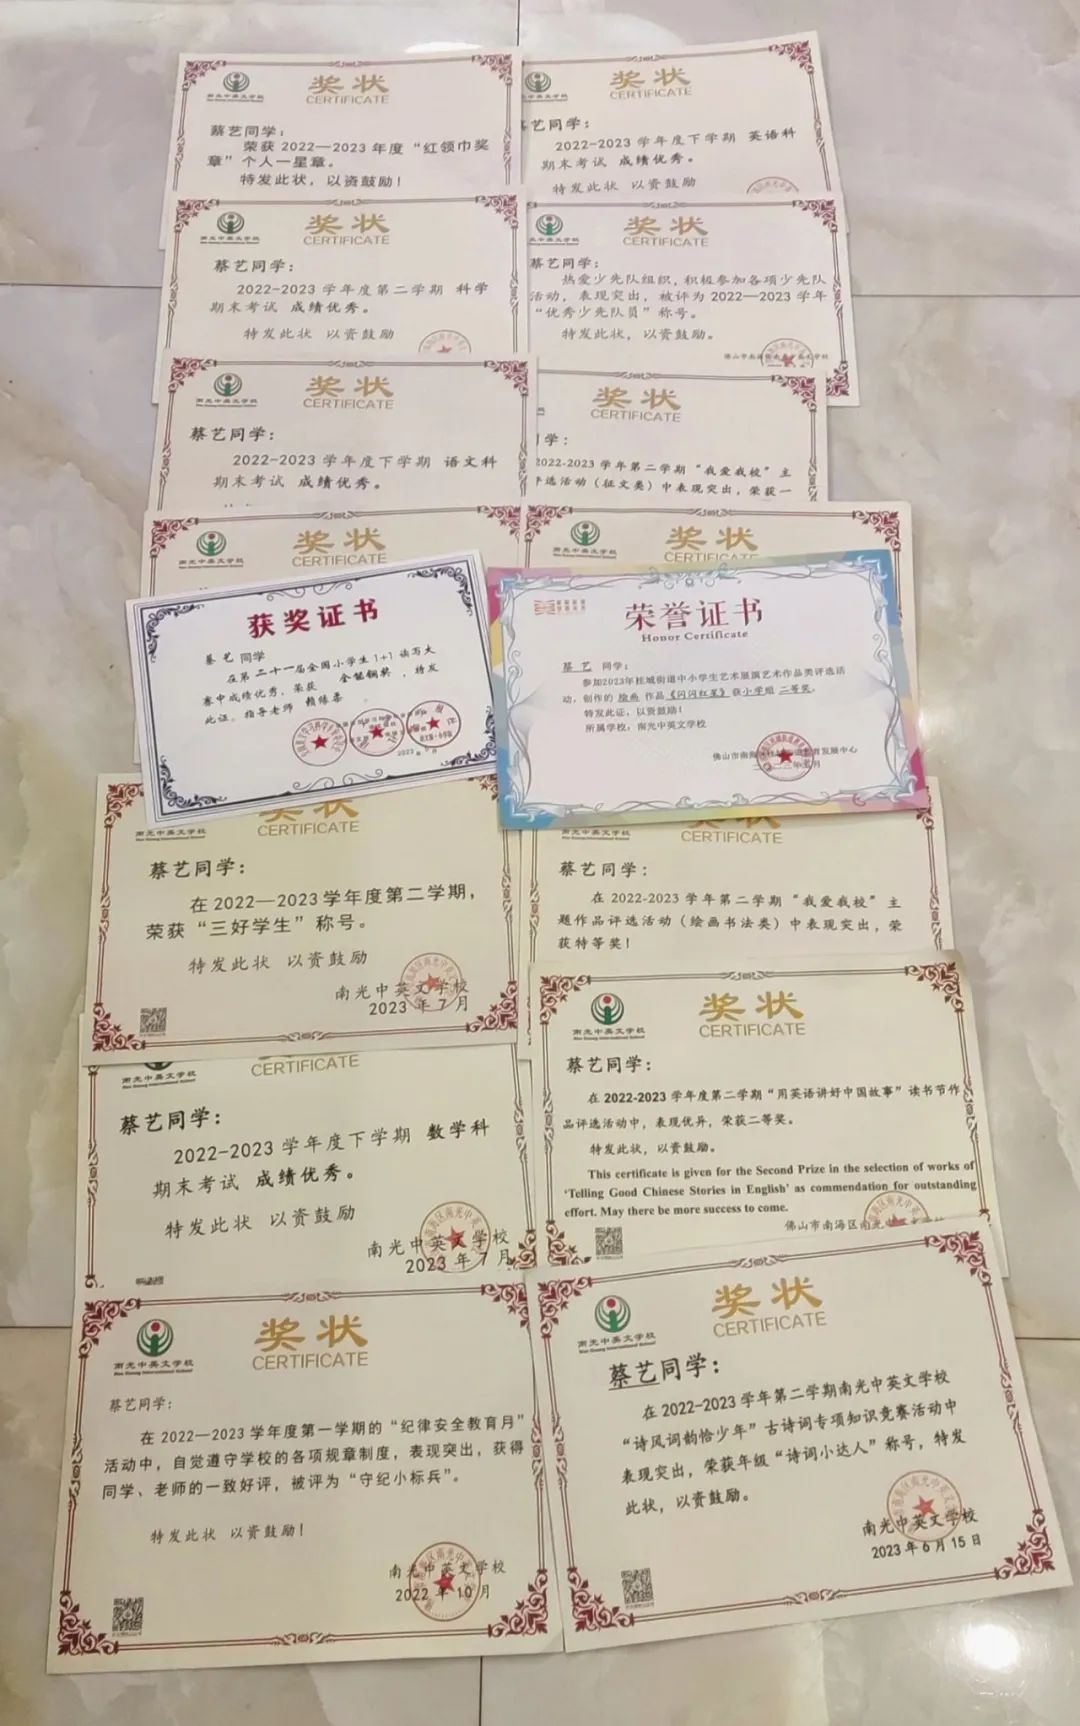 南光中英文学校
奖状
CERTIFICATE
蔡艺同学：
荣获 2022—2023 年度“红领巾奖
章”个人一星章。
特发此状，以资鼓励！
奖状
CERTIFICATE
艺同学：
2022-2023 学年度下学期 英语科
期末考试 成绩优秀。
特发此状 以资鼓励
南光中英文学校
奖状
CERTIFICATE
蔡艺同学：
2022-2023 学年度第二学期 科学
期末考试 成绩优秀。
特发此状 以资鼓励
南光中英文学校
奖状
CERTIFICATE
蔡艺同学：
热爱少先队组织，积极参加各项少先队
活动，表现突出，被评为 2022—2023 学年
“优秀少先队员”称号。
特发此状，以资鼓励。
佛山市南海区南光中英文学校
南光中英文学校
奖状
CERTIFICATE
蔡艺同学：
2022-2023 学年度下学期 语文科
期末考试 成绩优秀。
奖状
CERTIFICATE
同学：
2022-2023 学年第二学期“我爱我校”主
评选活动（征文类）中表现突出，荣获一
南光中英文学校
Nan Guang International School
奖状
CERTIFICATE
南光中英文学校
Nan Guang International School
奖状
CERTIFICATE
获奖证书
蔡艺 同学
在第二十一届全国小学生1+1读写大
赛中成绩优秀，荣获 全能铜奖，特发
此证。指导老师
2023年7月
荣誉证书
Honor Certificate
蔡艺 同学：
参加2023年桂城街道中小学生艺术展演艺术作品类评选活
动，创作的 绘画 作品《闪闪红星》获小学组 二等奖。
特发此证，以资鼓励！
所属学校：南光中英文学校
奖状
南光中英文学校
Nan Guang International School
CERTIFICATE
蔡艺同学：
在 2022—2023 学年度第二学期，
荣获“三好学生”称号。
特发此状 以资鼓励
南光中英文学校
2023 年 7 月
奖状
CERTIFICATE
蔡艺同学：
在 2022-2023 学年第二学期“我爱我校”主
题作品评选活动（绘画书法类）中表现突出，荣
获特等奖！
南光中英文学校
Nan Guang International School
CERTIFICATE
蔡艺同学：
2022-2023 学年度下学期 数学科
期末考试 成绩优秀。
特发此状 以资鼓励
南光中英文学校
2023 年 7 月
南光中英文学校
Nan Guang International School
奖状
CERTIFICATE
蔡艺同学：
在 2022-2023 学年度第二学期“用英语讲好中国故事”读书节作
品评选活动中，表现优异，荣获二等奖。
特发此状，以资鼓励。
This certificate is given for the Second Prize in the selection of works of
‘Telling Good Chinese Stories in English’ as commendation for outstanding
effort. May there be more success to come.
佛山市南海区南光中英文学校
南光中英文学校
Nan Guang International School
奖状
CERTIFICATE
蔡艺同学：
在 2022—2023 学年度第一学期的“纪律安全教育月”
活动中，自觉遵守学校的各项规章制度，表现突出，获得
同学、老师的一致好评，被评为“守纪小标兵”。
特发此状 以资鼓励！
南光中英文学校
2022 年 10 月
南光中英文学校
Nan Guang International School
奖状
CERTIFICATE
蔡艺同学：
在 2022-2023 学年第二学期南光中英文学校
“诗风词韵恰少年”古诗词专项知识竞赛活动中
表现突出，荣获年级“诗词小达人”称号，特发
此状，以资鼓励。
南光中英文学校
2023 年 6 月 15 日